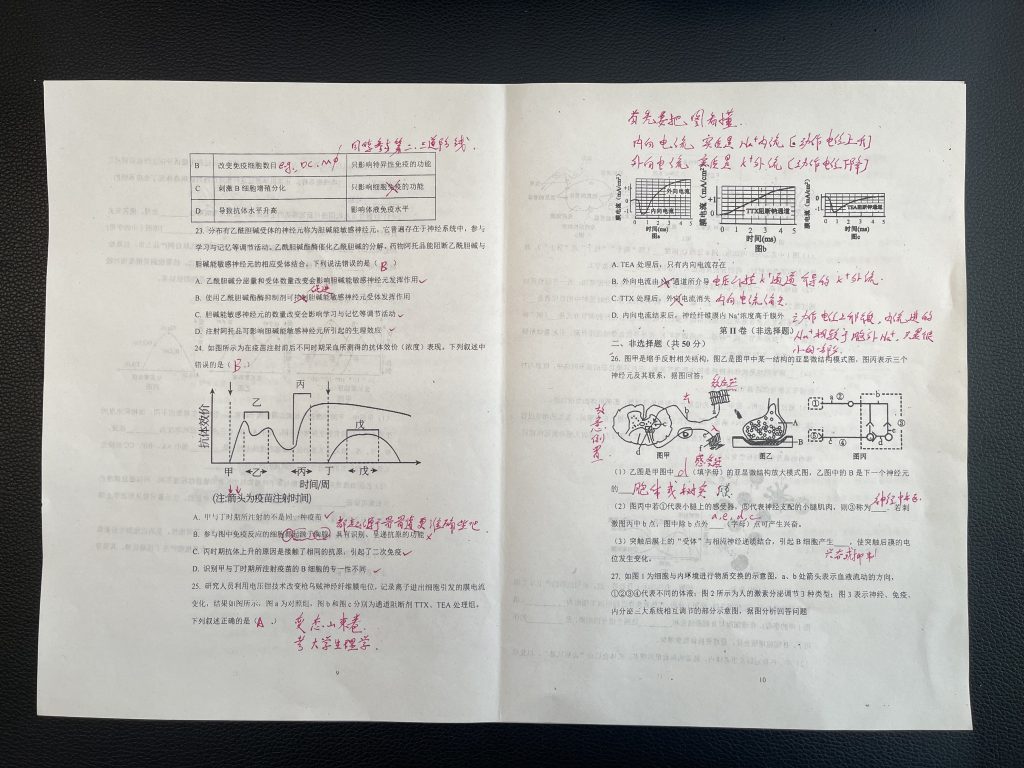 B 改变免疫细胞数目 eg, DC. Mφ 只影响特异性免疫的功能
C 刺激B细胞增殖分化 只影响细胞免疫的功能
D 导致抗体水平升高 影响体液免疫水平
23. 分布有乙酰胆碱受体的神经元称为胆碱能敏感神经元，它普遍存在于神经系统中，参与
学习与记忆等调节活动。乙酰胆碱酯酶催化乙酰胆碱的分解，药物阿托品能阻断乙酰胆碱与
胆碱能敏感神经元的相应受体结合。下列说法错误的是（ B ）
A. 乙酰胆碱分泌量和受体数量改变会影响胆碱能敏感神经元发挥作用
促进
B. 使用乙酰胆碱酯酶抑制剂可抑制胆碱能敏感神经元受体发挥作用
C. 胆碱能敏感神经元的数量改变会影响学习与记忆等调节活动
D. 注射阿托品可影响胆碱能敏感神经元所引起的生理效应
24. 如图所示为在疫苗注射前后不同时期采血所测得的抗体效价（浓度）表现。下列叙述中
错误的是（ B ）
抗体效价
乙
丙
戊
甲 乙 丙 丁 戊
时间/周
(注:箭头为疫苗注射时间)
A. 甲与丁时期所注射的不是同一种疫苗
B. 参与图中免疫反应的细胞 具有识别、呈递抗原的功能
C. 丙时期抗体上升的原因是接触了相同的抗原，引起了二次免疫
D. 识别甲与丁时期所注射疫苗的B细胞的专一性不同
25. 研究人员利用电压钳技术改变枪乌贼神经纤维膜电位，记录离子进出细胞引发的膜电流
变化，结果如图所示，图a为对照组，图b和图c分别为通道阻断剂TTX、TEA处理组。
下列叙述正确的是（ A ）
变态山東卷
考大学生理学.
9
首先要把图看懂.
内向电流 实质是 Na⁺内流
外向电流 实质是 K⁺外流 (动作电位下降)
膜电流（mA/cm²）
+1
0
-1
外向电流
内向电流
0 1 2 3 4 5
时间(ms)
图a
膜电流（mA/cm²）
+1
0
TTX阻断钠通道
0 1 2 3 4 5
时间(ms)
图b
膜电流（mA/cm²）
0
-1
TEA阻断钾通道
0 1 2 3 4 5
时间(ms)
图c
A. TEA处理后，只有内向电流存在
B. 外向电流由Na⁺通道所介导
C. TTX处理后，外向电流消失 内向电流消失
D. 内向电流结束后，神经纤维膜内Na⁺浓度高于膜外
第II卷（非选择题）
二、非选择题（共50分）
26. 图甲是缩手反射相关结构，图乙是图甲中某一结构的亚显微结构模式图，图丙表示三个
神经元及其联系，据图回答。
效应器
感受器
图甲
A
B
图乙
① ② ③ ④ ⑤
b
d
e
图丙
（1）乙图是甲图中 d （填字母）的亚显微结构放大模式图，乙图中的B是下一个神经元
的 胞体或树突 膜
神经中枢
（2）图丙中若①代表小腿上的感受器，⑤代表神经支配的小腿肌肉，则③称为____. 若刺
激图丙中b点，图中除b点外 a,e,d,c （字母）点可产生兴奋。
（3）突触后膜上的“受体”与相应神经递质结合，引起B细胞产生____，使突触后膜的电
位发生变化。
兴奋或抑制
27. 如图1为细胞与内环境进行物质交换的示意图，a、b处箭头表示血液流动的方向，
①②③④代表不同的体液；图2所示为人的激素分泌调节3种类型；图3表示神经、免疫、
内分泌三大系统相互调节的部分示意图。据图分析回答问题
10